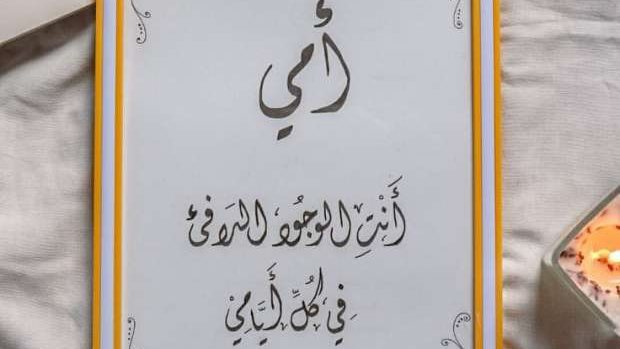 أُمي
أَنْتِ الوجُود الدافئ
فِي كُلِّ أَيَّامِيْ